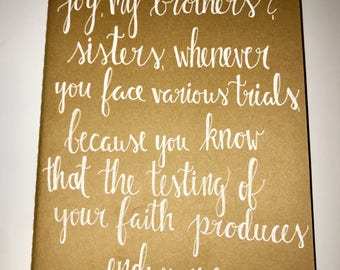 joy, my brothers &
sisters, whenever
you face various trials,
because you know
that the testing of
your faith produces